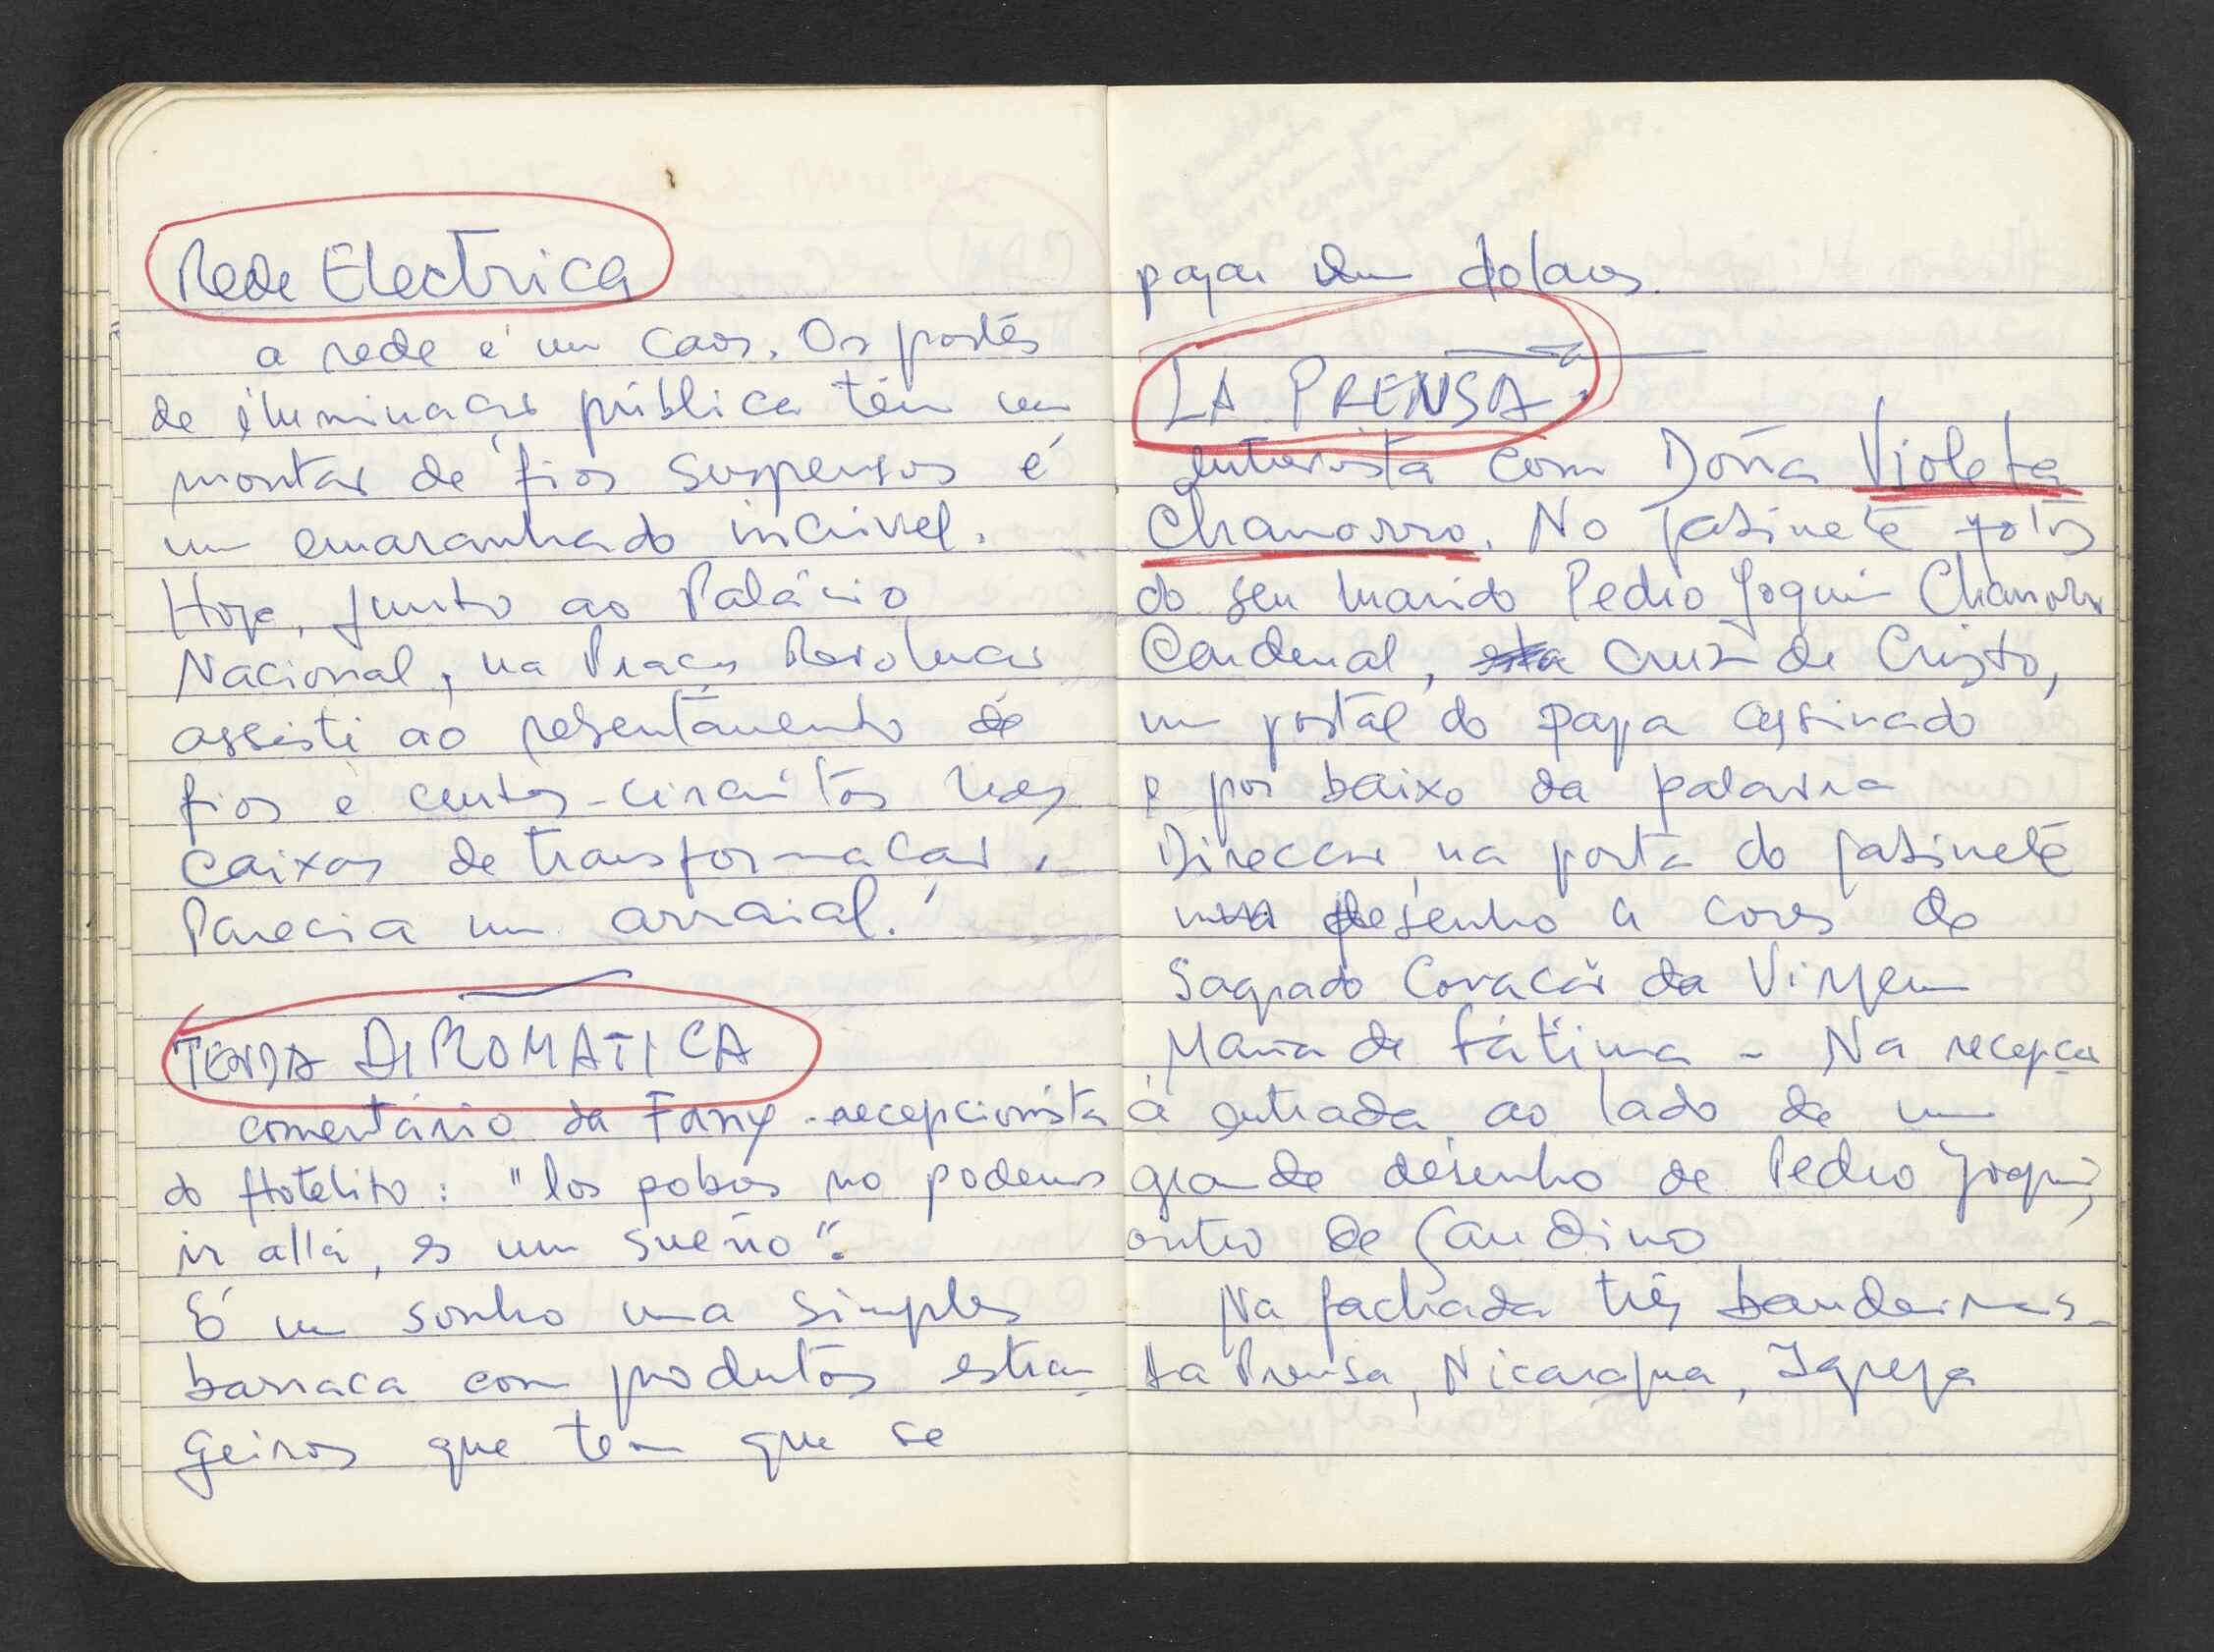 Rede Electrica
a rede é um caos. Os postes
de iluminação pública têm um
montão de fios suspensos é
um emaranhado incrivel.
Hoje, junto ao Palácio
Nacional, na Praça Revolução
assisti ao rebentamento de
fios e curtos-circuitos nas
caixas de transformação.
Parecia um arraial!
TENDA DIPLOMATICA
comentário da Fany - recepcionista
do Hotelito: "los pobres no podemos
ir allá, es um sueño".
É um sonho uma simples
barraca com produtos estran
geiros que tem que se
pagar em dolares.
LA PRENSA:
entrevista com Doña Violeta
Chamorro. No gabinete fotos
do seu marido Pedro Joquin Chamorro
Cardenal, cruz de Cristo,
um postal do papa assinado
e por baixo da palavra
Direcção na porta do gabinete
um desenho a cores do
Sagrado Coração da Virgem
Maria de Fátima - Na recepção
à entrada ao lado de um
grande desenho de Pedro Joquin,
outro de Sandino
Na fachada três bandeiras -
La Prensa, Nicaragua, Igreja